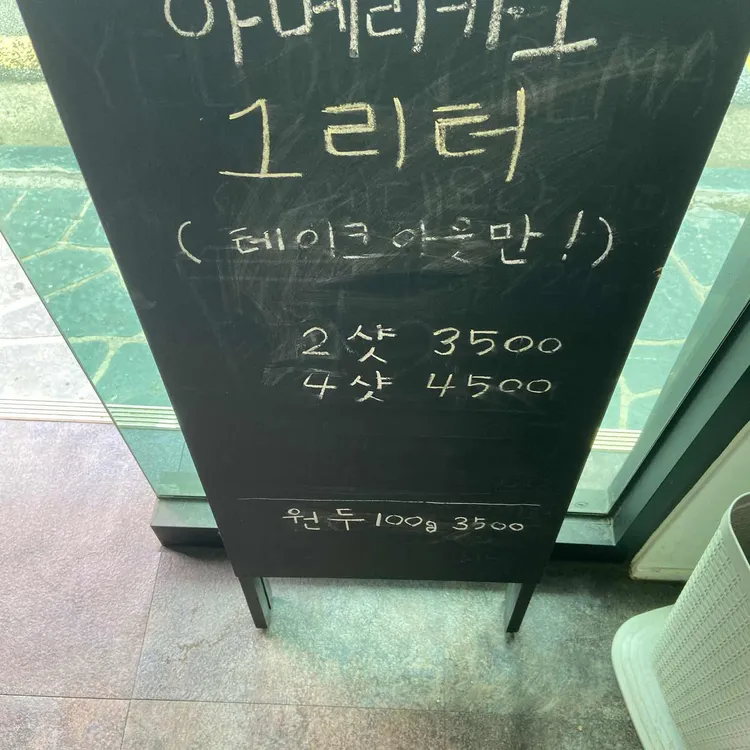 아메리카노
1리터
(테이크아웃만!)
2샷 3500
4샷 4500
원두 100g 3500